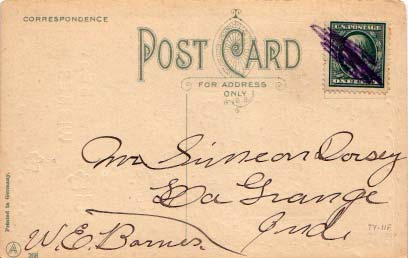 CORRESPONDENCE
POST CARD
FOR ADDRESS
ONLY
U.S. POSTAGE
Mr Simeon Dorsey
La Grange
Ind.
W.E. Barnes.
Printed in Germany.